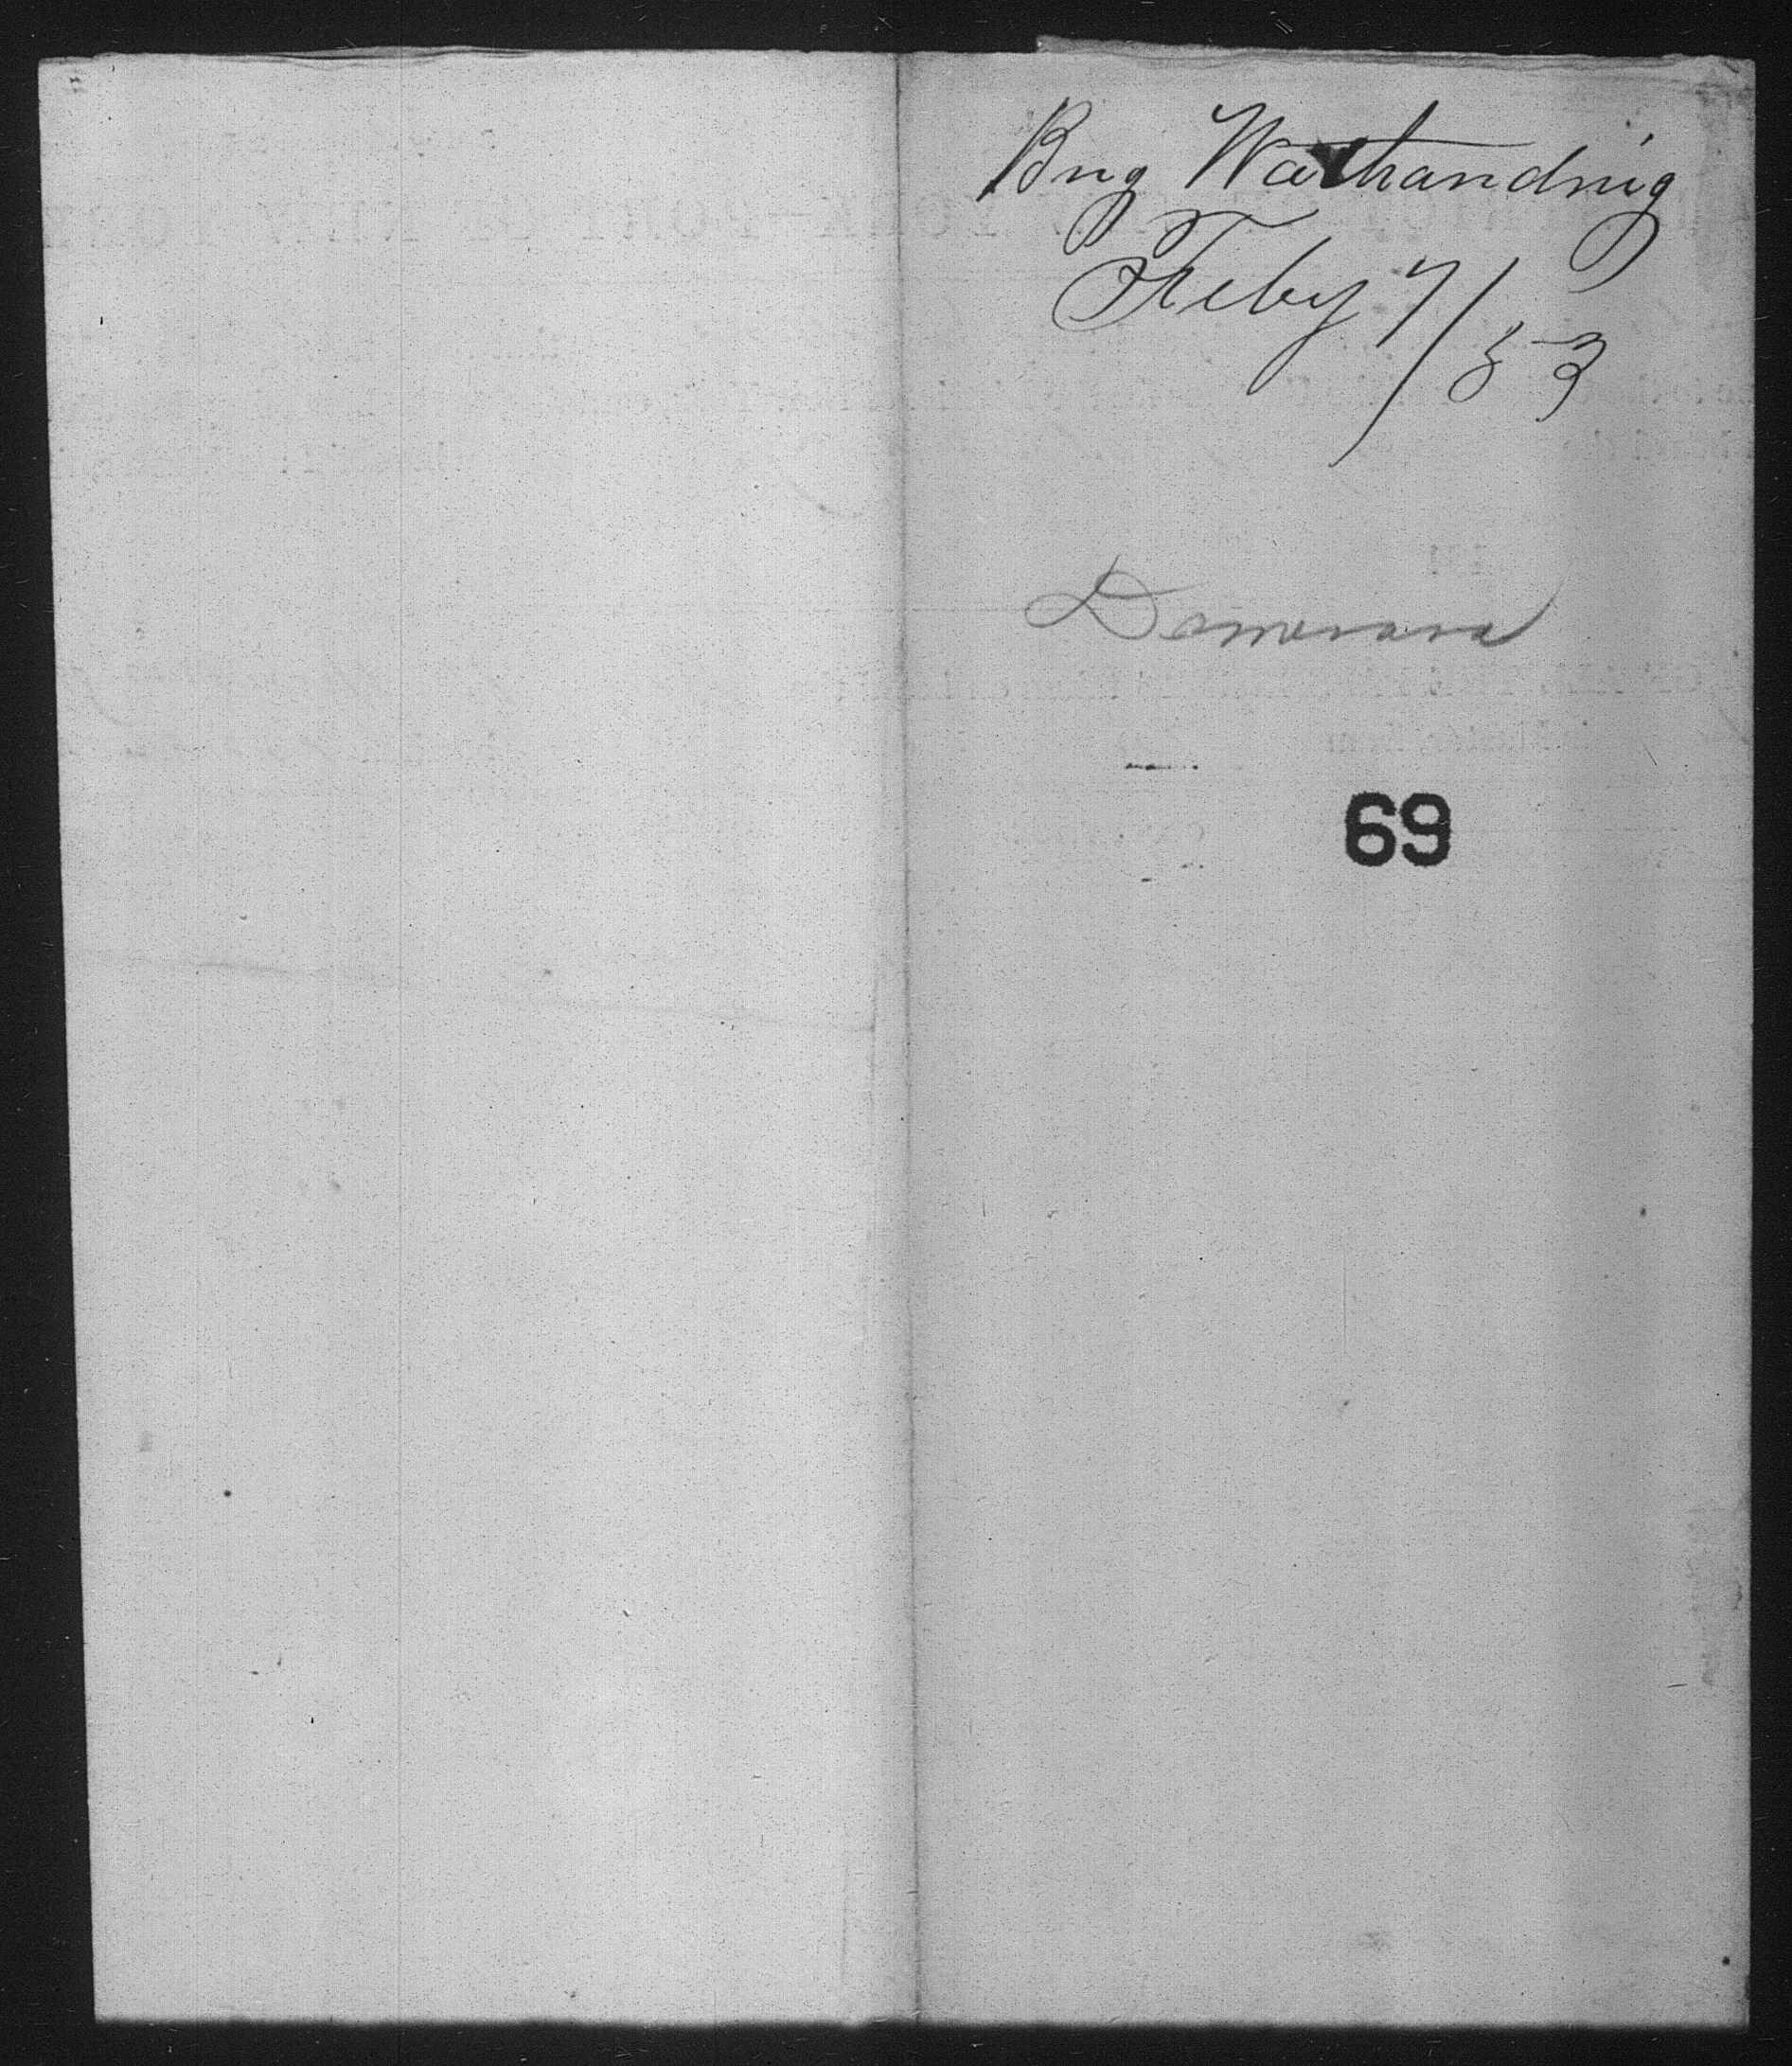 Brig Wathandnig
Feby 7/53
Demerara
69